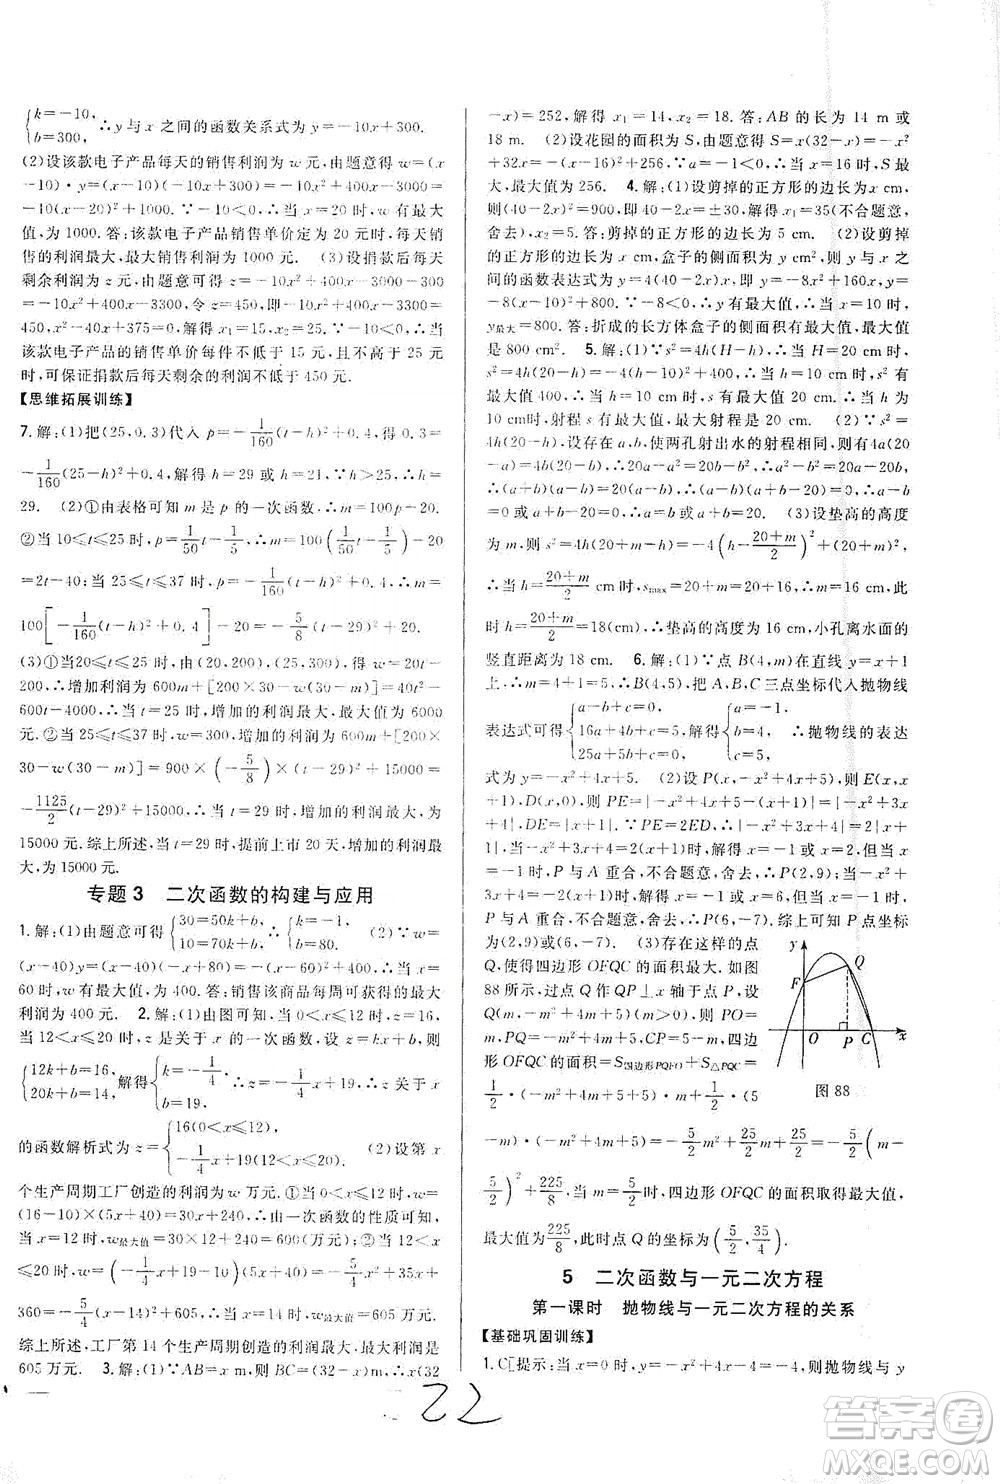 {k=-10,
b=300, ∴y与x之间的函数关系式为y=-10x+300.
(2)设该款电子产品每天的销售利润为w元,由题意得w=(x
-10)·y=(x-10)(-10x+300)=-10x²+400x-3000=
-10(x-20)²+1000.∵-10<0,∴当x=20时,w有最大
值,为1000.答:该款电子产品销售单价定为20元时,每天销
售的利润最大,最大利润为1000元. (3)设捐款后每天剩
余利润为z元,由题意可得z=-10x²+400x-3000-300
=-10x²+400x-3300,令z=450,即-10x²+400x-3300=
450,x²-40x+375=0.解得x₁=15,x₂=25.∵-10<0,∴当
该款电子产品的销售单价每件不低于15元,且不高于25元
时,可保证捐款后每天剩余的利润不低于450元.
【思维拓展训练】
7.解:(1)把(25,0.3)代入p=-1/160(t-h)²+0.4,得0.3=
-1/160(25-h)²+0.4,解得h=29或h=21,∵h>25,∴h=
29. (2)①由表格可知m是p的一次函数,∴m=100p-20.
②当10≤t≤25时,p=1/50t-1/5,∴m=100(1/50t-1/5)-20
=2t-40;当25≤t≤37时,p=-1/160(t-h)²+0.4.∴m=
100[-1/160(t-29)²+0.4]-20=-5/8(t-29)²+20.
(3)①当20≤t≤25时,由(20,200),(25,300),得w=20t-
200,∴增加利润为600m+[200×30-w(30-m)]=40t²-
600t-4000.∴当t=25时,增加的利润最大,最大值为6000
元.②当25≤t≤37时,w=300,增加的利润为600m+[200×
30-w(30-m)]=900×(-5/8)×(t-29)²+15000=
-1125/2(t-29)²+15000,∴当t=29时,增加的利润最大,为
15000元.综上所述,当t=29时,提前上市20天,增加的利润最
大,为15000元.
专题3 二次函数的构建与应用
1.解:(1)由题意可得{30=50k+b, 10=70k+b,∴{k=-1, b=80. (2)∵w=
(x-40)y=(x-40)(-x+80)=-(x-60)²+400,∴当x=
60时,w有最大值,为400.答:销售该商品每周可获得的最大
利润为400元. 2.解:(1)由图可知,当0<x≤12时,z=16,
当12<x≤20时,z是关于x的一次函数,设z=kx+b,则
{12k+b=16, 20k+b=14, 解得{k=-1/4, b=19, ∴z=-1/4x+19,∴z关于x
的函数解析式为z={16(0<x≤12), -1/4x+19(12<x≤20). (2)设第x
个生产周期工厂创造的利润为w万元.①当0<x≤12时,w=
(16-10)×(5x+40)=30x+240,∴由一次函数的性质可知,
当x=12时,w最大值=30×12+240=600(万元);②当12<x
≤20时,w=(-1/4x+19-10)(5x+40)=-5/4x²+35x+
360=-5/4(x-14)²+605,∴当x=14时,w最大值=605万元.
综上所述,工厂第14个生产周期创造的利润最大,最大利润是
605万元. 3.解:(1)∵AB=x m,则BC=(32-x)m,∴x(32
-x)=252,解得x₁=14,x₂=18.答:AB的长为14 m或
18 m. (2)设花园的面积为S,由题意得S=x(32-x)=-x²
+32x=-(x-16)²+256.∵a=-1<0,∴当x=16时,S最
大,最大值为256. 4.解:(1)设剪掉的正方形的边长为x cm,
则(40-2x)²=900,即40-2x=±30,解得x₁=35(不合题意,
舍去),x₂=5.答:剪掉的正方形的边长为5 cm. (2)设剪掉
的正方形的边长为x cm,盒子的侧面积为y cm²,则y与x之
间的函数表达式为y=4(40-2x)x,即y=-8x²+160x=
-8(x-10)²+800.∵-8<0,∴y有最大值.∴当x=10时,
y最大=800.答:折成的长方体盒子的侧面积有最大值,最大值
是800 cm². 5.解:(1)∵s²=4h(H-h),∴当H=20 cm时,
s²=4h(20-h)=-4(h-10)²+400,∴当h=10 cm时,s²有
最大值400,∴当h=10 cm时,s有最大值20 cm.∴当h为
10 cm时,射程s有最大值,最大射程是20 cm. (2)∵s²=
4h(20-h),设存在a,b,使两孔射出水的射程相同,则有4a(20
-a)=4b(20-b),∴20a-a²=20b-b²,∴a²-b²=20a-20b,
∴(a+b)(a-b)=20(a-b),∴(a-b)(a+b-20)=0,∴a-b
=0或a+b-20=0,∴a=b或a+b=20. (3)设垫高的高度
为m,则s²=4h(20+m-h)=-4(h-20+m/2)²+(20+m)²,
∴当h=20+m/2时,smax=20+m=20+16,∴m=16 cm,此
时h=20+m/2=18(cm).∴垫高的高度为16 cm,小孔离水面的
竖直距离为18 cm. 6.解:(1)∵点B(4,m)在直线y=x+1
上,∴m=4+1=5,∴B(4,5),把A,B,C三点坐标代入抛物线
表达式可得{a-b+c=0, 16a+4b+c=5, 25a+5b+c=0, 解得{a=-1, b=4, c=5, ∴抛物线的表达
式为y=-x²+4x+5. (2)设P(x,-x²+4x+5),则E(x,x
+1),D(x,0),则PE=|-x²+4x+5-(x+1)|=|-x²+3x
+4|,DE=|x+1|.∵PE=2ED,∴|-x²+3x+4|=2|x+
1|,当-x²+3x+4=2(x+1)时,解得x=-1或x=2,但当x
=-1时,P与A重合,不合题意,舍去,∴P(2,9);当-x²+3x
+4=-2(x+1)时,解得x=-1或x=6,但当x=-1时,
P与A重合,不合题意,舍去,∴P(6,-7).综上可知P点坐标
为(2,9)或(6,-7). (3)存在这样的点
Q,使得四边形OFQC的面积最大.如图
88所示,过点Q作QP⊥x轴于点P,设
Q(n,-n²+4n+5)(n>0),则PO=n,
PQ=-n²+4n+5,CP=5-n,四边形
OFQC的面积=S四边形PQFO+S△PQC=
1/2×(-n²+4n+5+5)·n+1/2·(5
-n)·(-n²+4n+5)=-5/2n²+25/2n+25/2=-5/2(n-
5/2)²+225/8,当n=5/2时,四边形OFQC的面积取得最大值,
最大值为225/8,此时点Q的坐标为(5/2,35/4).
y
F
Q
O
P
C
x
图88
5 二次函数与一元二次方程
第一课时 抛物线与一元二次方程的关系
【基础巩固训练】
1.C[提示:当x=0时,y=-x²+4x-4=-4,则抛物线与y
22
答案圈
MXQE.COM